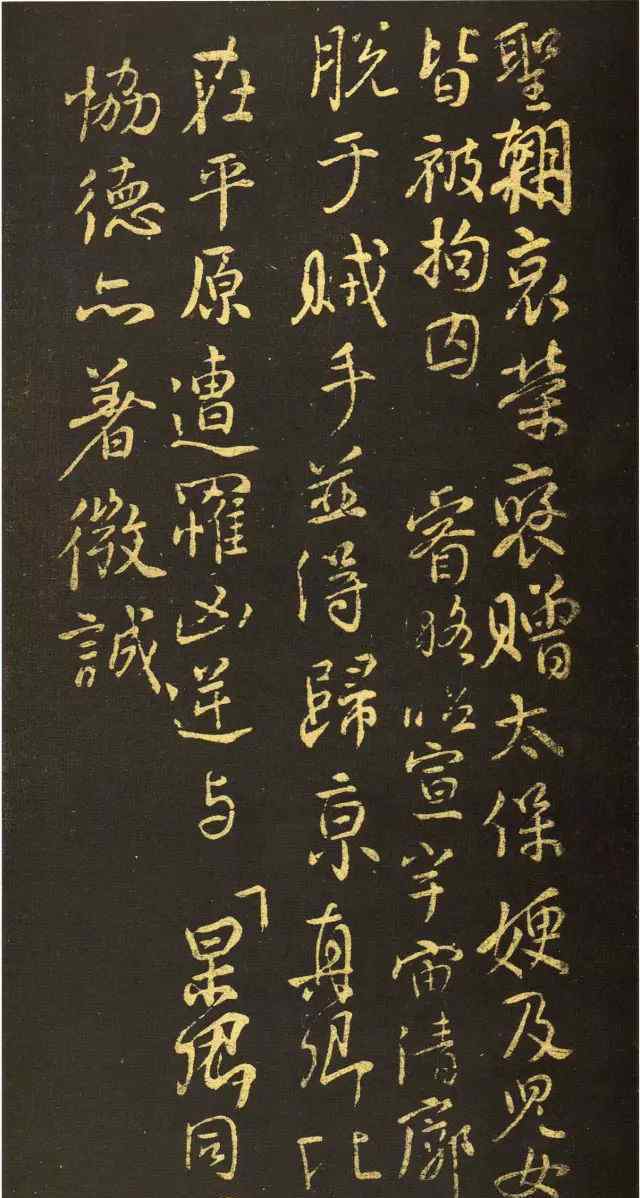 聖朝哀榮褒贈太保嫂及兒女
皆被拘囚睿略昭宣宇宙清廓
脫于賊手並得歸京真卿比
在平原遭罹凶逆与杲卿同
協德亦著微誠